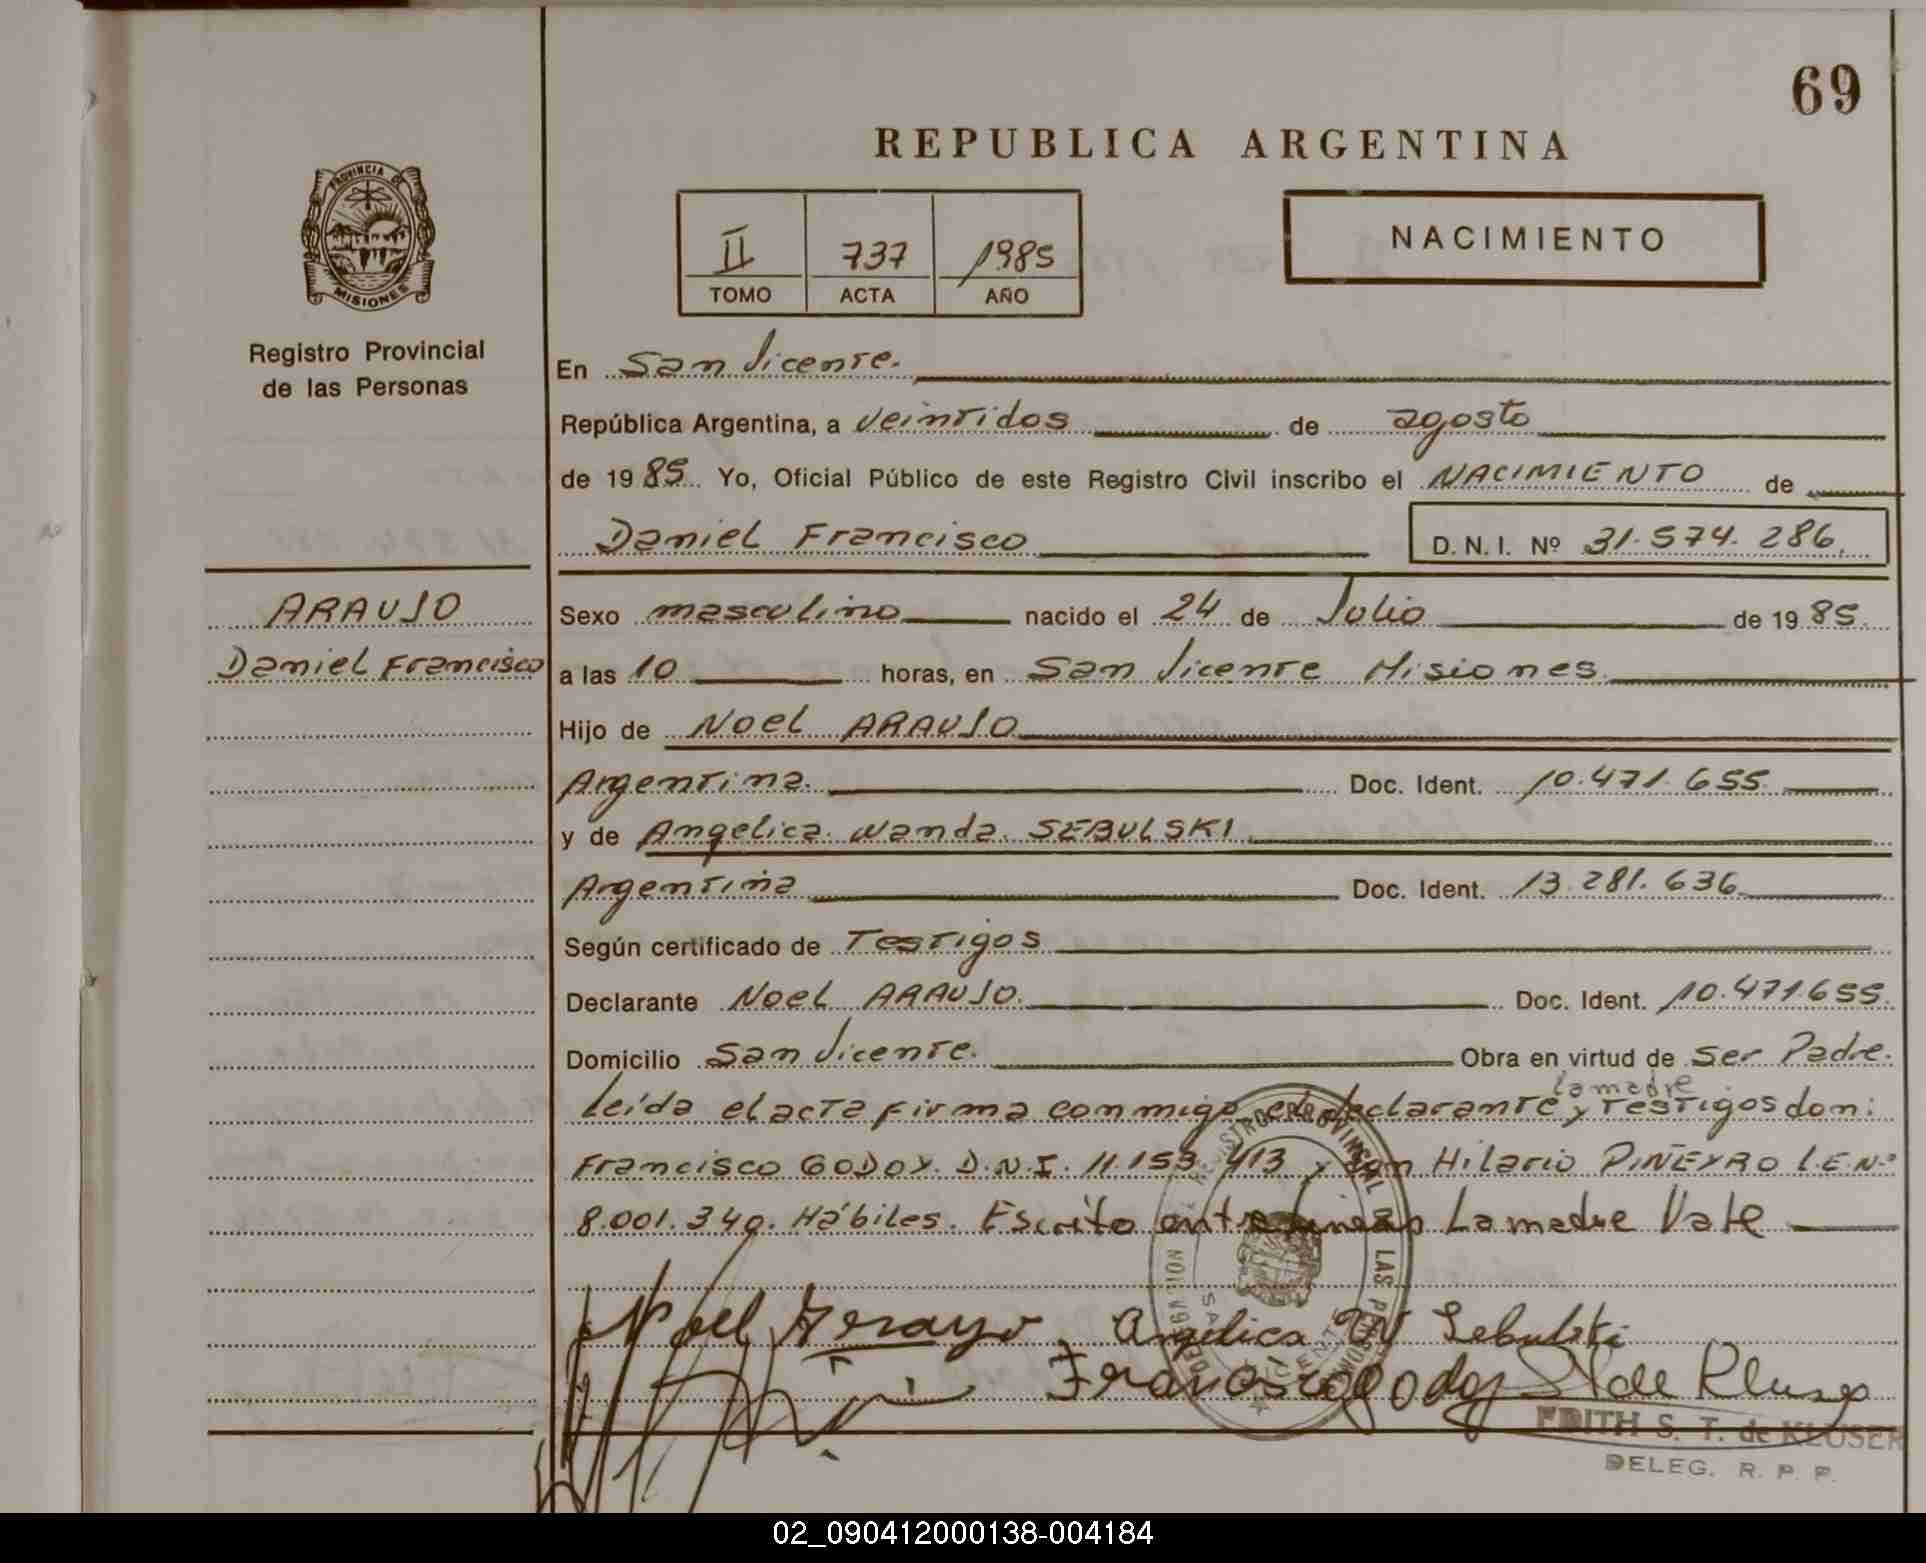 69
REPUBLICA ARGENTINA
PROVINCIA DE
MISIONES
Registro Provincial
de las Personas
II 737 1985
TOMO ACTA AÑO
NACIMIENTO
En San Vicente.
República Argentina, a veintidos de agosto
de 1985. Yo, Oficial Público de este Registro Civil inscribo el NACIMIENTO de
Daniel Francisco D.N.I. Nº 31.574.286.
ARAUJO
Daniel Francisco
Sexo masculino nacido el 24 de Julio de 1985.
a las 10 horas, en San Vicente Misiones.
Hijo de Noel ARAUJO
Argentina. Doc. Ident. 10.471.655.
y de Angelica Wanda SEBULSKI
Argentina Doc. Ident. 13.281.636
Según certificado de Testigos
Declarante Noel ARAUJO. Doc. Ident. 10.471.655.
Domicilio San Vicente. Obra en virtud de ser Padre.
la madre
Leída el acta firma conmigo el declarante y testigos don:
Francisco GODOY. D.N.I. 11.153.413 y don Hilario PIÑEYRO L.E.Nº
8.001.340. Hábiles. Escrito entre lineas La madre Vale
DELEGACION DEL REGISTRO PROVINCIAL DE LAS PERSONAS
SAN VICENTE
Noel Arrayo Angelica W Sebulski
Francisco godoy S T de Kluser
EDITH S. T. de KLUSER
DELEG. R. P. P.
02_090412000138-004184